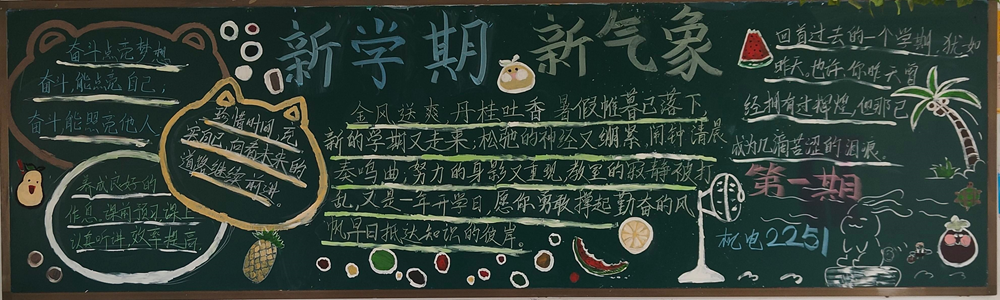 新学期 新气象
奋斗点亮梦想,
奋斗能点亮自己,
奋斗能照亮他人
珍惜时间,充
实自己,向着未来的
道路继续前进。
养成良好的
作息,课前预习课上
认真听讲,效率提高。
金风送爽,丹桂吐香,暑假帷幕已落下,
新的学期又走来;松驰的神经又绷紧,闹钟清晨
奏鸣曲;努力的身影又重现,教室的寂静被打
乱,又是一年开学日,愿你勇敢撑起勤奋的风
帆早日抵达知识的彼岸。
回首过去的一个学期,犹如
昨天。也许,你昨天曾
经拥有过辉煌,但那已
成为几滴苦涩的泪痕。
第一期
机电2251